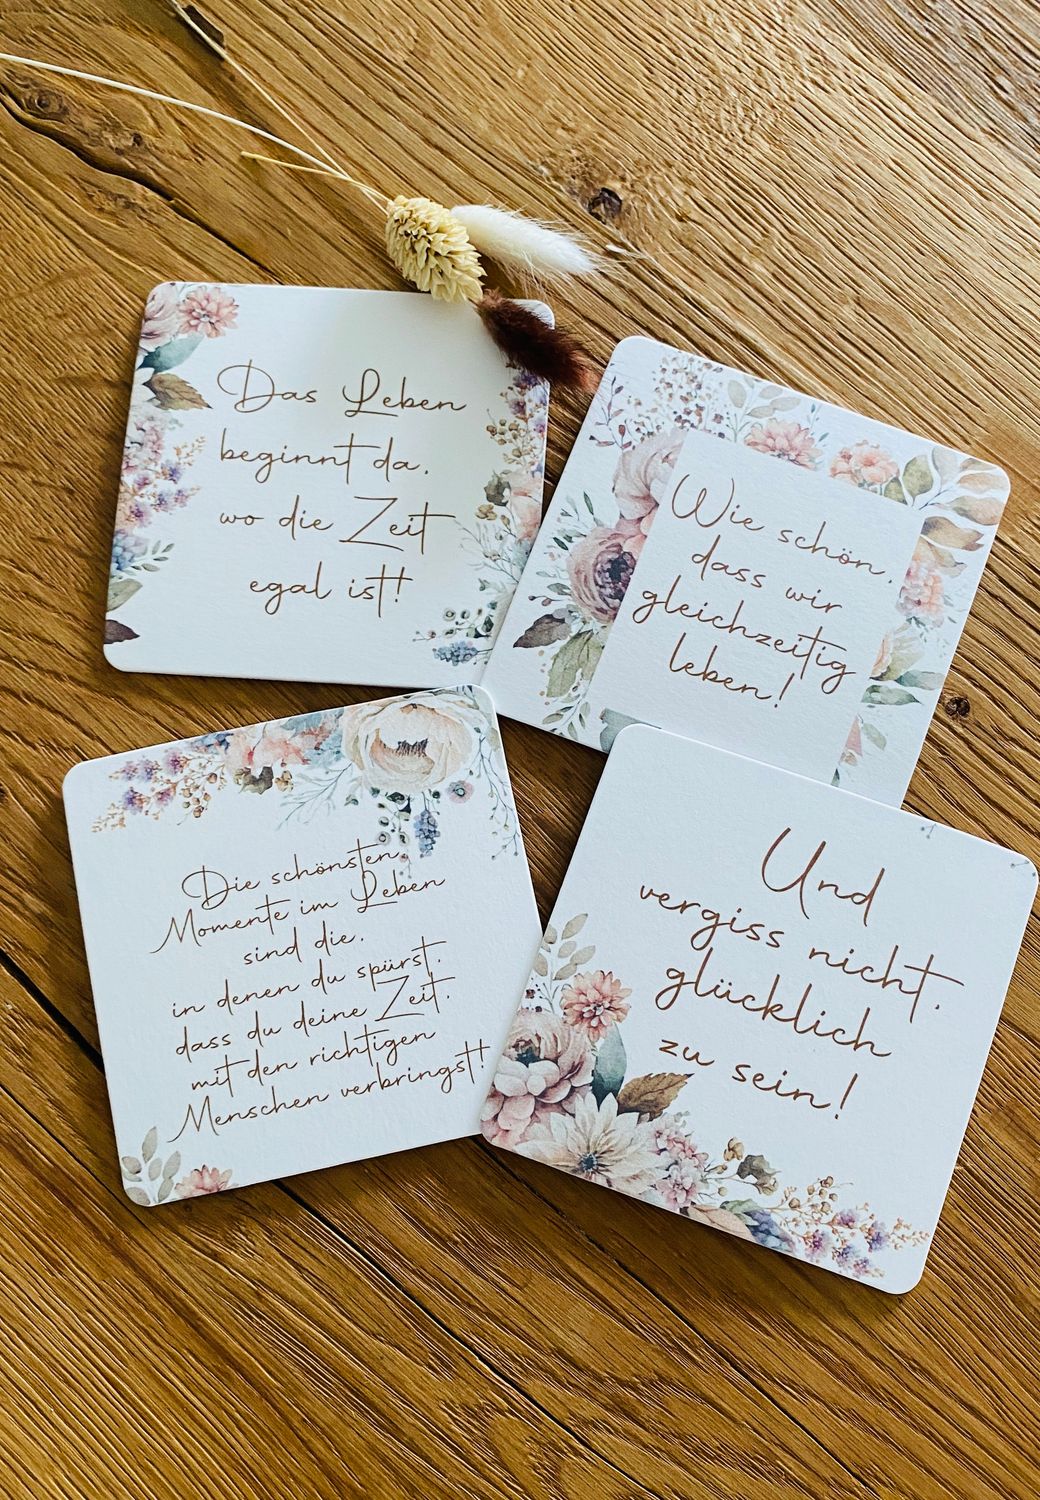 Das Leben
beginnt da,
wo die Zeit
egal ist!
Wie schön,
dass wir
gleichzeitig
leben!
Die schönsten
Momente im Leben
sind die,
in denen du spürst,
dass du deine Zeit,
mit den richtigen
Menschen verbringst!
Und
vergiss nicht,
glücklich
zu sein!